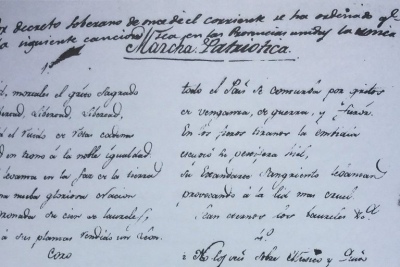 or decreto soberano de once de el corriente se ha ordenado q.e
la siguiente cancion sea en las Provincias unidas la unica
Marcha Patriotica.
1.º
d, mortales el grito sagrado
bertad, Libertad, Libertad,
d el ruido de rotas cadenas
d en trono á la noble igualdad
levanta en la faz de la tierra
na nueva gloriosa Nacion
oronada su cien de laureles,
á sus plantas rendido un Leon.
Coro
todo el Pais se conturba por gritos
de venganza, de guerra, y furor.
En los fieros tiranos la embidia
escupió su pestifera hiel,
su estandarte sangriento levantan
provocando á la lid mas cruel.
Sean eternos los laureles &.a
4.º
¿ No los veis sobre Mexico y Quito